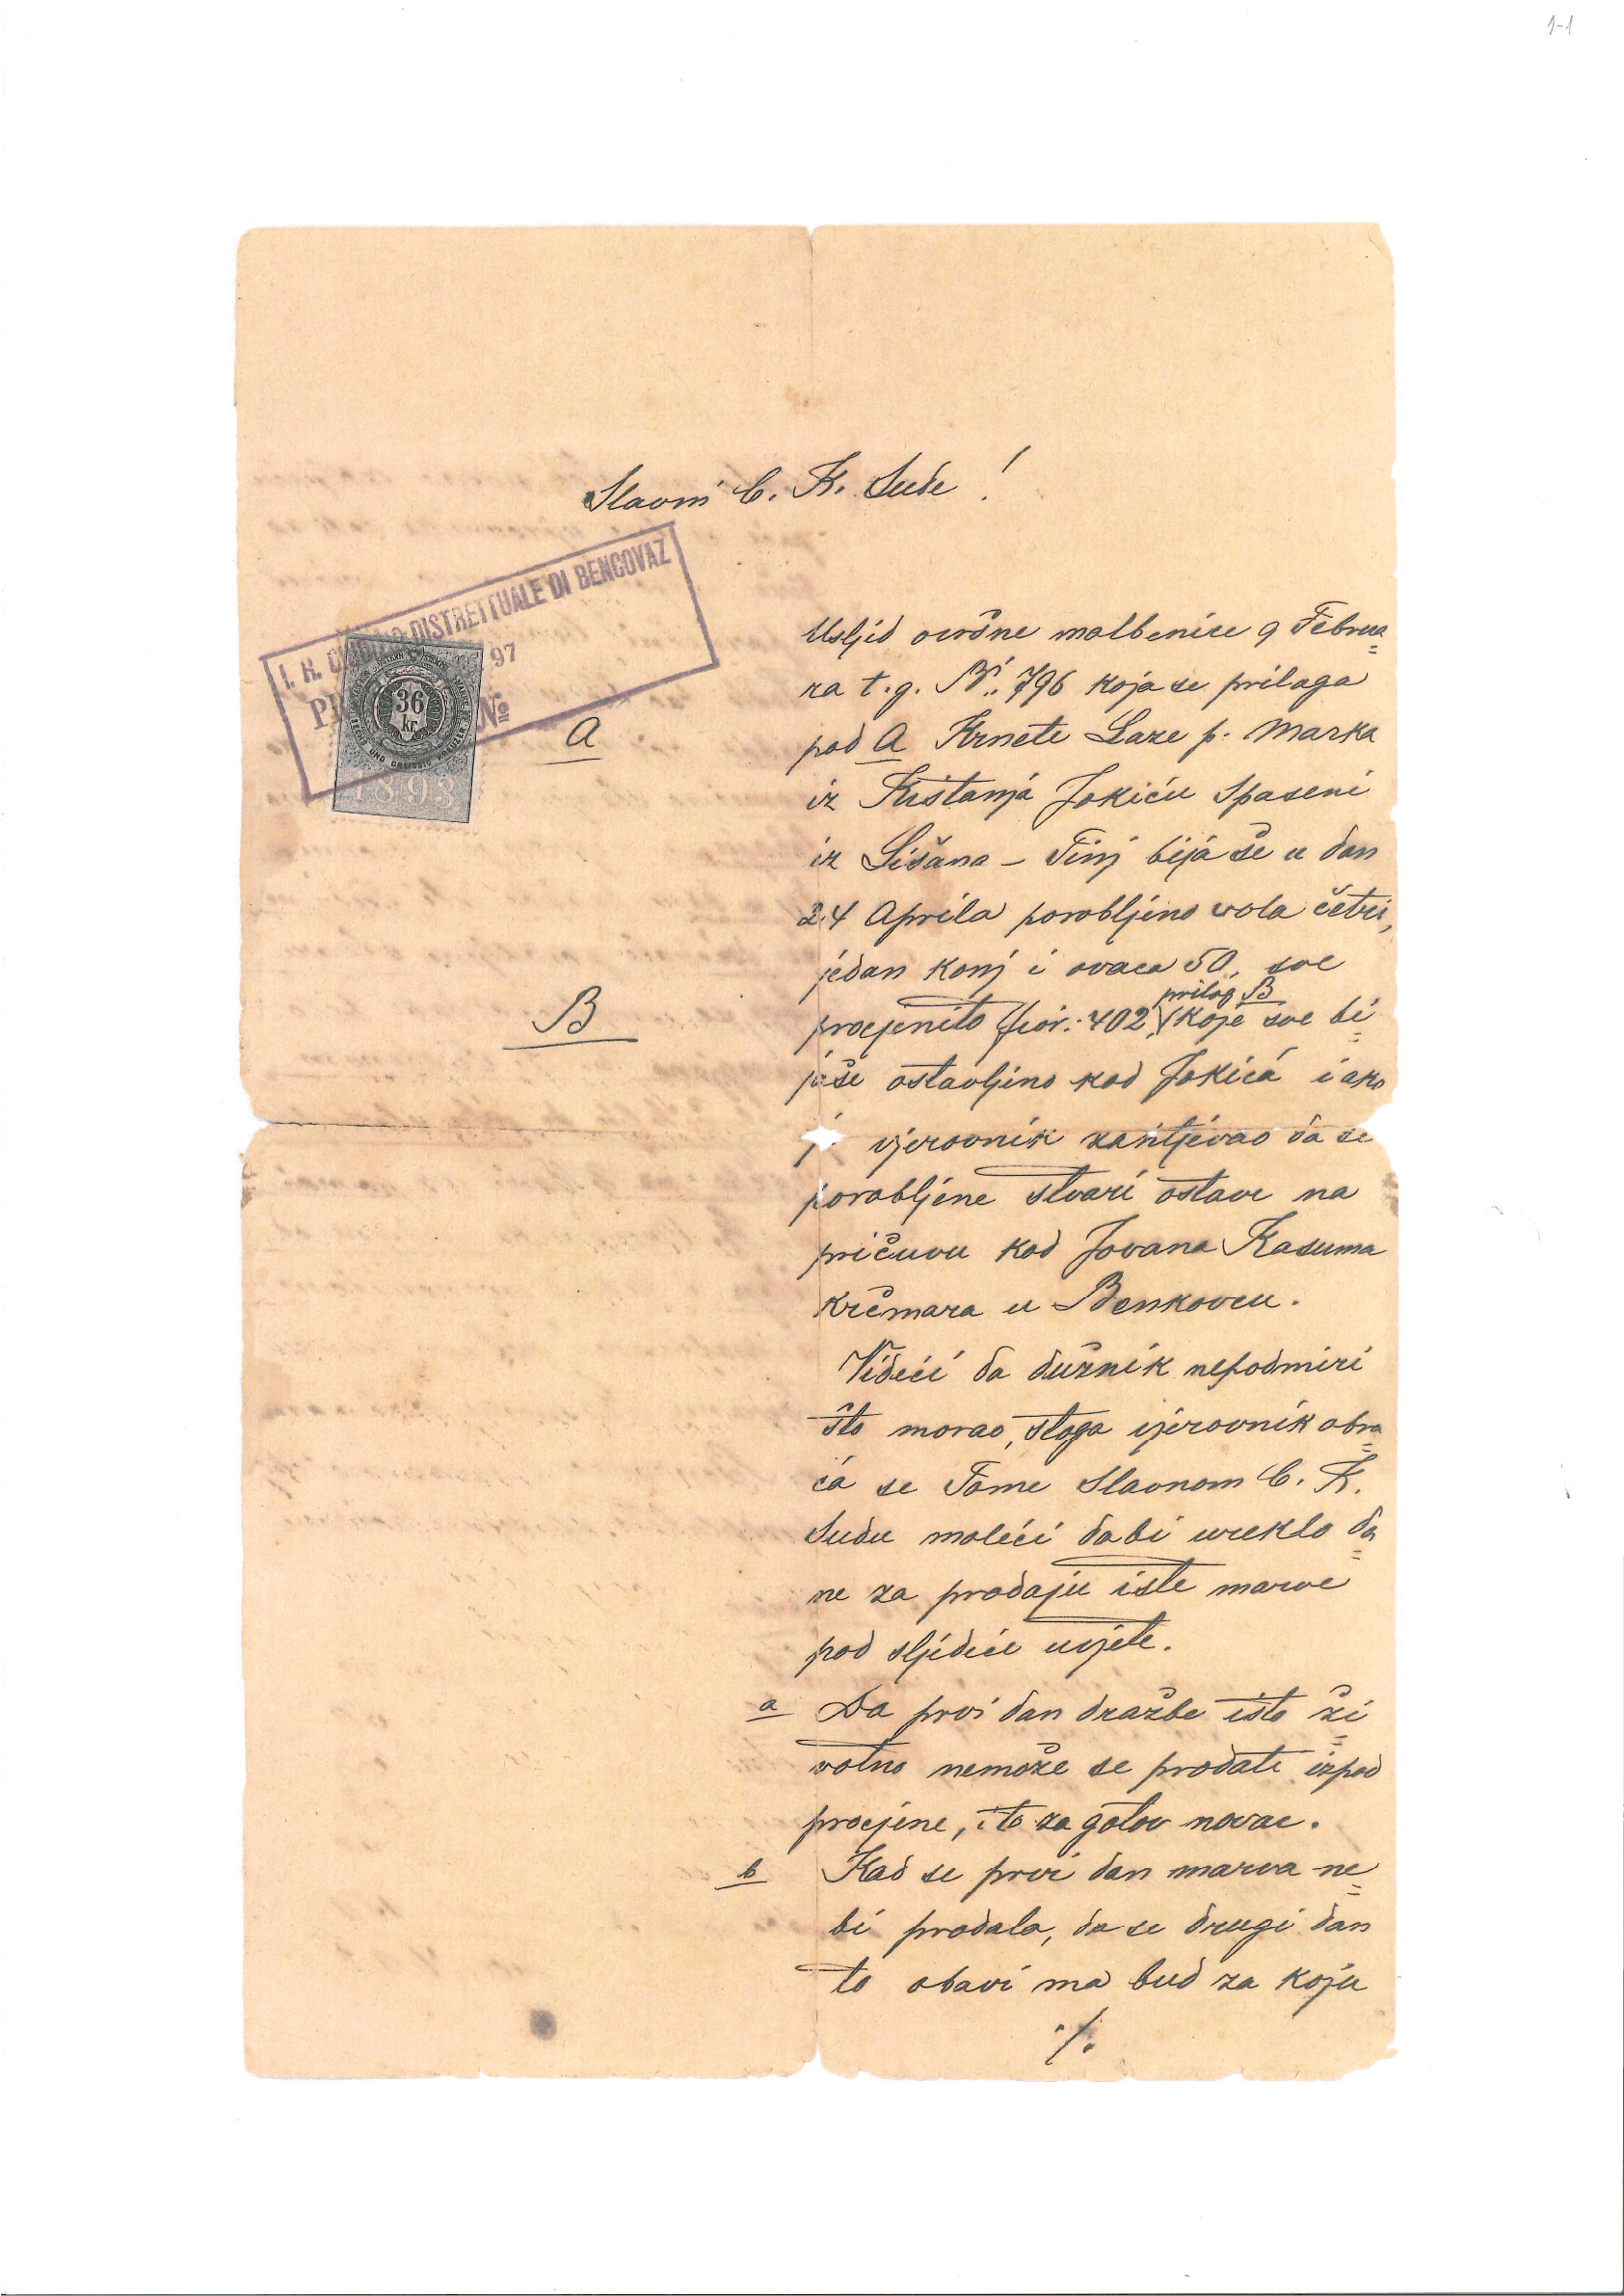 1-1
Slavni C. K. Sude!
I. R. GIUDIZIO DISTRETTUALE DI BENCOVAZ
97
PR № 
36
kr
1893
A
Usljed ovršne molbenice 9 Februa=
ra t.g. Br. 796 koja se prilaga
pod A Krnete Laze p. Marka
iz Kistanja Jokiću Spaseni
iz Lišana - Tinj bijaše u dan
24 Aprila porobljeno vola četri,
jedan konj i ovaca 50, sve
prilog B
B
procjenito fior. 402, (koje sve bi=
jaše ostavljeno kod Jokića i ako
j vjerovnik zahtjevao da se
porobljene stvari ostave na
pričuvu kod Jovana Kasuma
krčmara u Benkovcu.
Videći da dužnik nepodmiri
što morao, stoga vjerovnik obra=
ća se Tome Slavnom C. K.
Sudu moleći dabi ureklo da=
ne za prodaju iste marve
pod sljedeće uvjete.
a Da prvi dan dražbe isto ži=
votno nemože se prodati izpod
procjene, i to za gotov novac.
b Kad se prvi dan marva ne=
bi prodala, da se drugi dan
to obavi ma bud za koju
./.